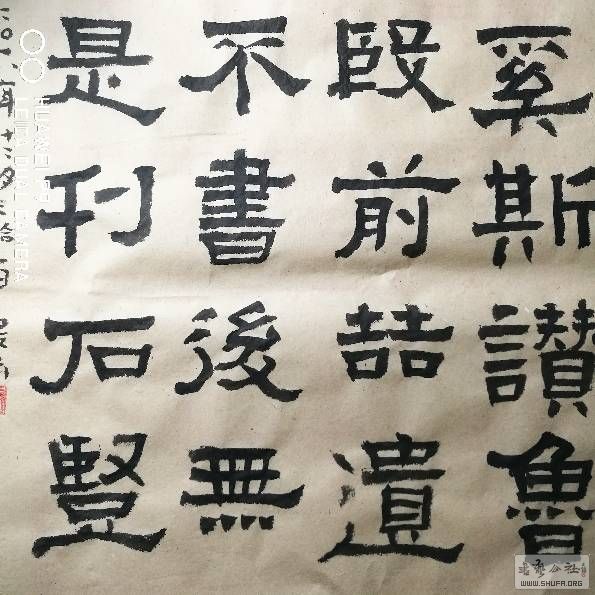 奚斯讚魯
殷前喆遺
不書後無
是刊石豎
二〇一八年十二月
HUAWEI
LEICA DUAL CAMERA
公社
WWW.SHUFA.ORG